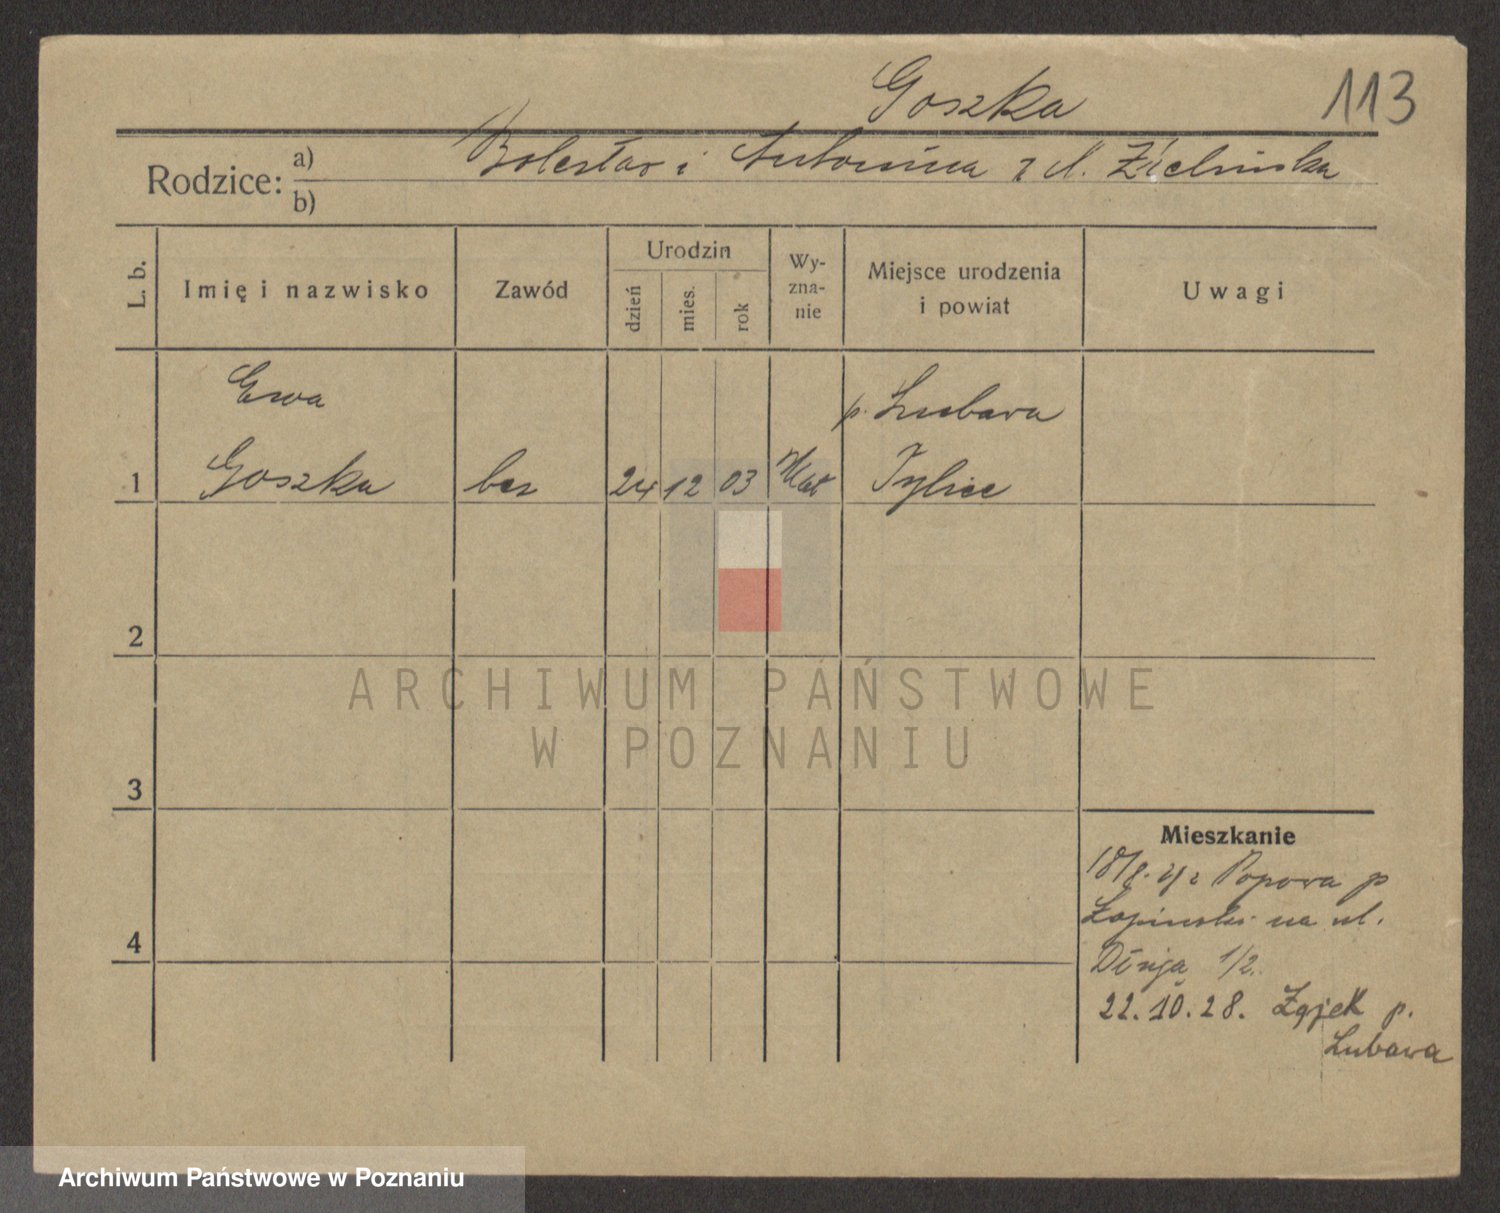 Goszka
113
Rodzice:
a) Bolesław i Antonina z d. Zielińska
b)
L. b.
Imię i nazwisko
Zawód
Urodzin
dzień
mies.
rok
Wy-
zna-
nie
Miejsce urodzenia
i powiat
Uwagi
Ewa
p. Lubawa
1 Goszka bez 24 12 03 Kat Tylice
2
3
4
Mieszkanie
18/8. z Popowa p
Łopiński na ul.
Długa 1/2.
22.10.28. Zajek p.
Lubawa
ARCHIWUM PAŃSTWOWE
W POZNANIU
Archiwum Państwowe w Poznaniu